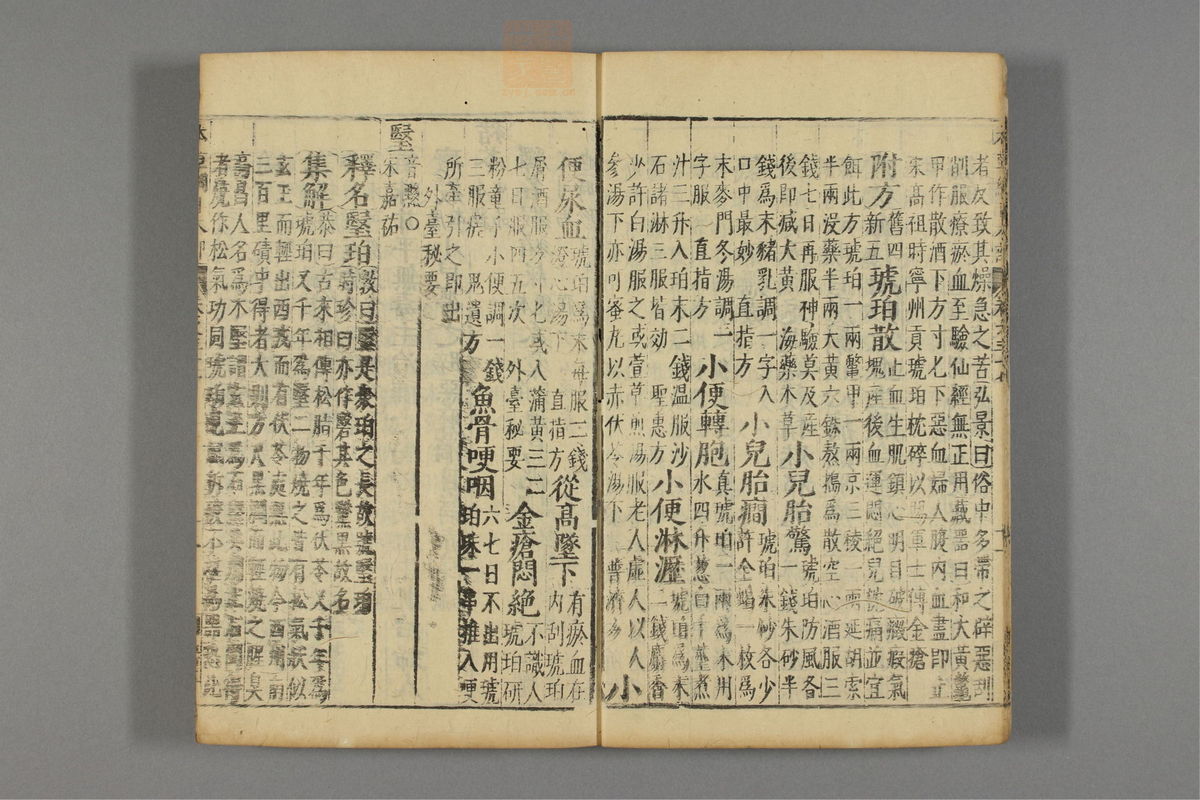 者反致其燥急之苦弘景曰俗中多帶之辟惡刮
削服療瘀血至驗仙經無正用藏器曰和大黃鱉
甲作散酒下方寸匕下惡血婦人腹內血盡即止
宋高祖時寧州貢琥珀枕碎以賜軍士傅金瘡
附方舊四新五琥珀散止血生肌鎮心明目破癥瘕氣塊產後血運悶絕兒枕痛並宜
餌此方琥珀一兩鱉甲一兩京三棱一兩延胡索
半兩沒藥半兩大黃六銖熬搗為散空心酒服三
錢七日再服神驗莫及產
後即減大黃 海藥本草小兒胎驚琥珀防風各一錢朱砂半
錢為末豬乳調一字入
口中最妙 直指方小兒胎癇琥珀朱砂各少許全蝎一枚為
末麥門冬湯調一
字服 直指方小便轉胞真琥珀一兩為末用水四升葱白十莖煮
汁三升入珀末二錢溫服沙
石諸淋三服皆效 聖惠方小便淋瀝琥珀為末二錢麝香
少許白湯服之或萱草煎湯服老人虛人以人
參湯下亦可蜜丸以赤伏苓湯下 普濟方 小
便尿血琥珀為末每服二錢燈心湯下 直指方從高墜下有瘀血在內刮琥珀
屑酒服方寸匕或入蒲黃三二
七日服四五次 外臺秘要金瘡悶絕不識人琥珀研
粉童子小便調一錢
三服瘥 鬼遺方魚骨哽咽六七日不出用琥珀珠一串推入哽
所牽引之即出
外臺秘要
瑿
音黳○
宋嘉祐
釋名瑿珀時珍曰亦作黳其色黳黑故名
集解恭曰古來相傳松脂千年為伏苓又千年為
琥珀又千年為瑿二物燒之皆有松氣狀似
玄玉而輕出西戎而有伏苓處無此物今西州
三百里磧中得者大則方尺黑潤而輕燒之腥臭
高昌人名為木瑿謂玄玉為石瑿
者覺作松氣功同琥珀